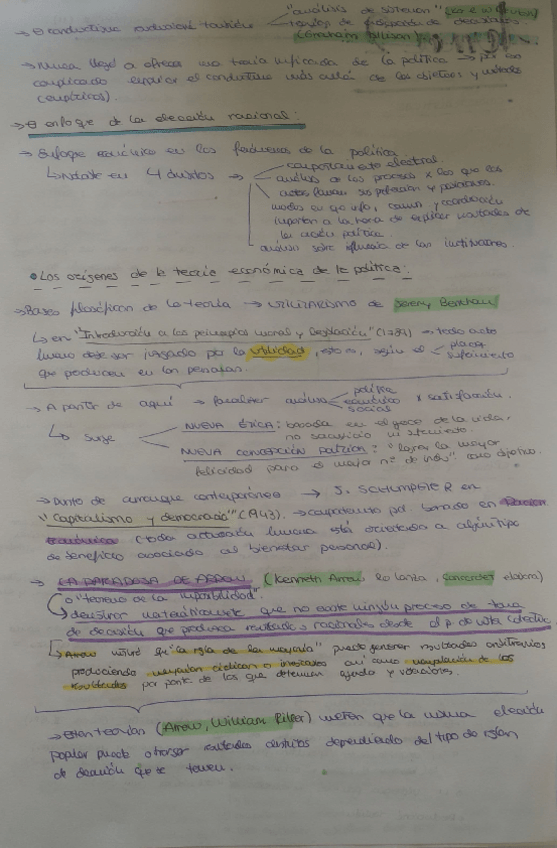 → El conductismo evolucionó también "análisis de sistemas"
(Graham Allison)
→ Nunca llegó a ofrecer una teoría unificada de la política →
complicado explicar el conductismo más allá de los objetivos y métodos
(empíricos).
→ El enfoque de la elección racional:
→ Enfoque económico en los fenómenos de la política.
↳ Notable en 4 ámbitos →
comportamiento electoral.
análisis de los procesos x los que los
actores forman sus preferencias y
modos en que info, comun. y coordinación
importan a la hora de explicar resultados de
la acción política.
análisis sobre influencia de las instituciones.
• Los orígenes de la teoría económica de la política:
→ Bases filosóficas de la teoría → UTILITARISMO de Jeremy Bentham
↳ en "Introducción a los principios moral y legislación" (1789) → todo acto
humano debe ser juzgado por la utilidad, esto es, según el placer
sufrimiento
que producen en las personas.
→ A partir de aquí → análisis política
económico
sociales
x satisfacción.
↳ Surge
NUEVA ÉTICA: basada en el goce de la vida,
no sacrificio ni sufrimiento.
NUEVA CONCEPCIÓN: "lograr la mayor
felicidad para el mayor nº de indvs" como objetivo.
→ Punto de arranque contemporáneo → J. SCHUMPETER en
"Capitalismo y democracia" (1943). → comportamiento pol. basado en
(toda actuación humana está orientada a algún tipo
de beneficio asociado al bienestar personal).
→ LA PARADOJA DE ARROW (Kenneth Arrow lo lanza, Condorcet elabora)
o "teorema de la imposibilidad"
↳ demostrar matemáticamente que no existe ningún proceso de toma
de decisión que produzca resultados racionales desde el p. de vista colectivo.
↳ Arrow que "la regla de la mayoría" puede generar resultados arbitrarios
produciendo mayorías cíclicas o inestables así como manipulación de los
resultados por parte de los que determinan agenda y votaciones.
→ Estas teorías (Arrow, William Riker) que la misma elección
popular puede arrojar resultados distintos dependiendo del tipo de reglas
de decisión que se tomen.